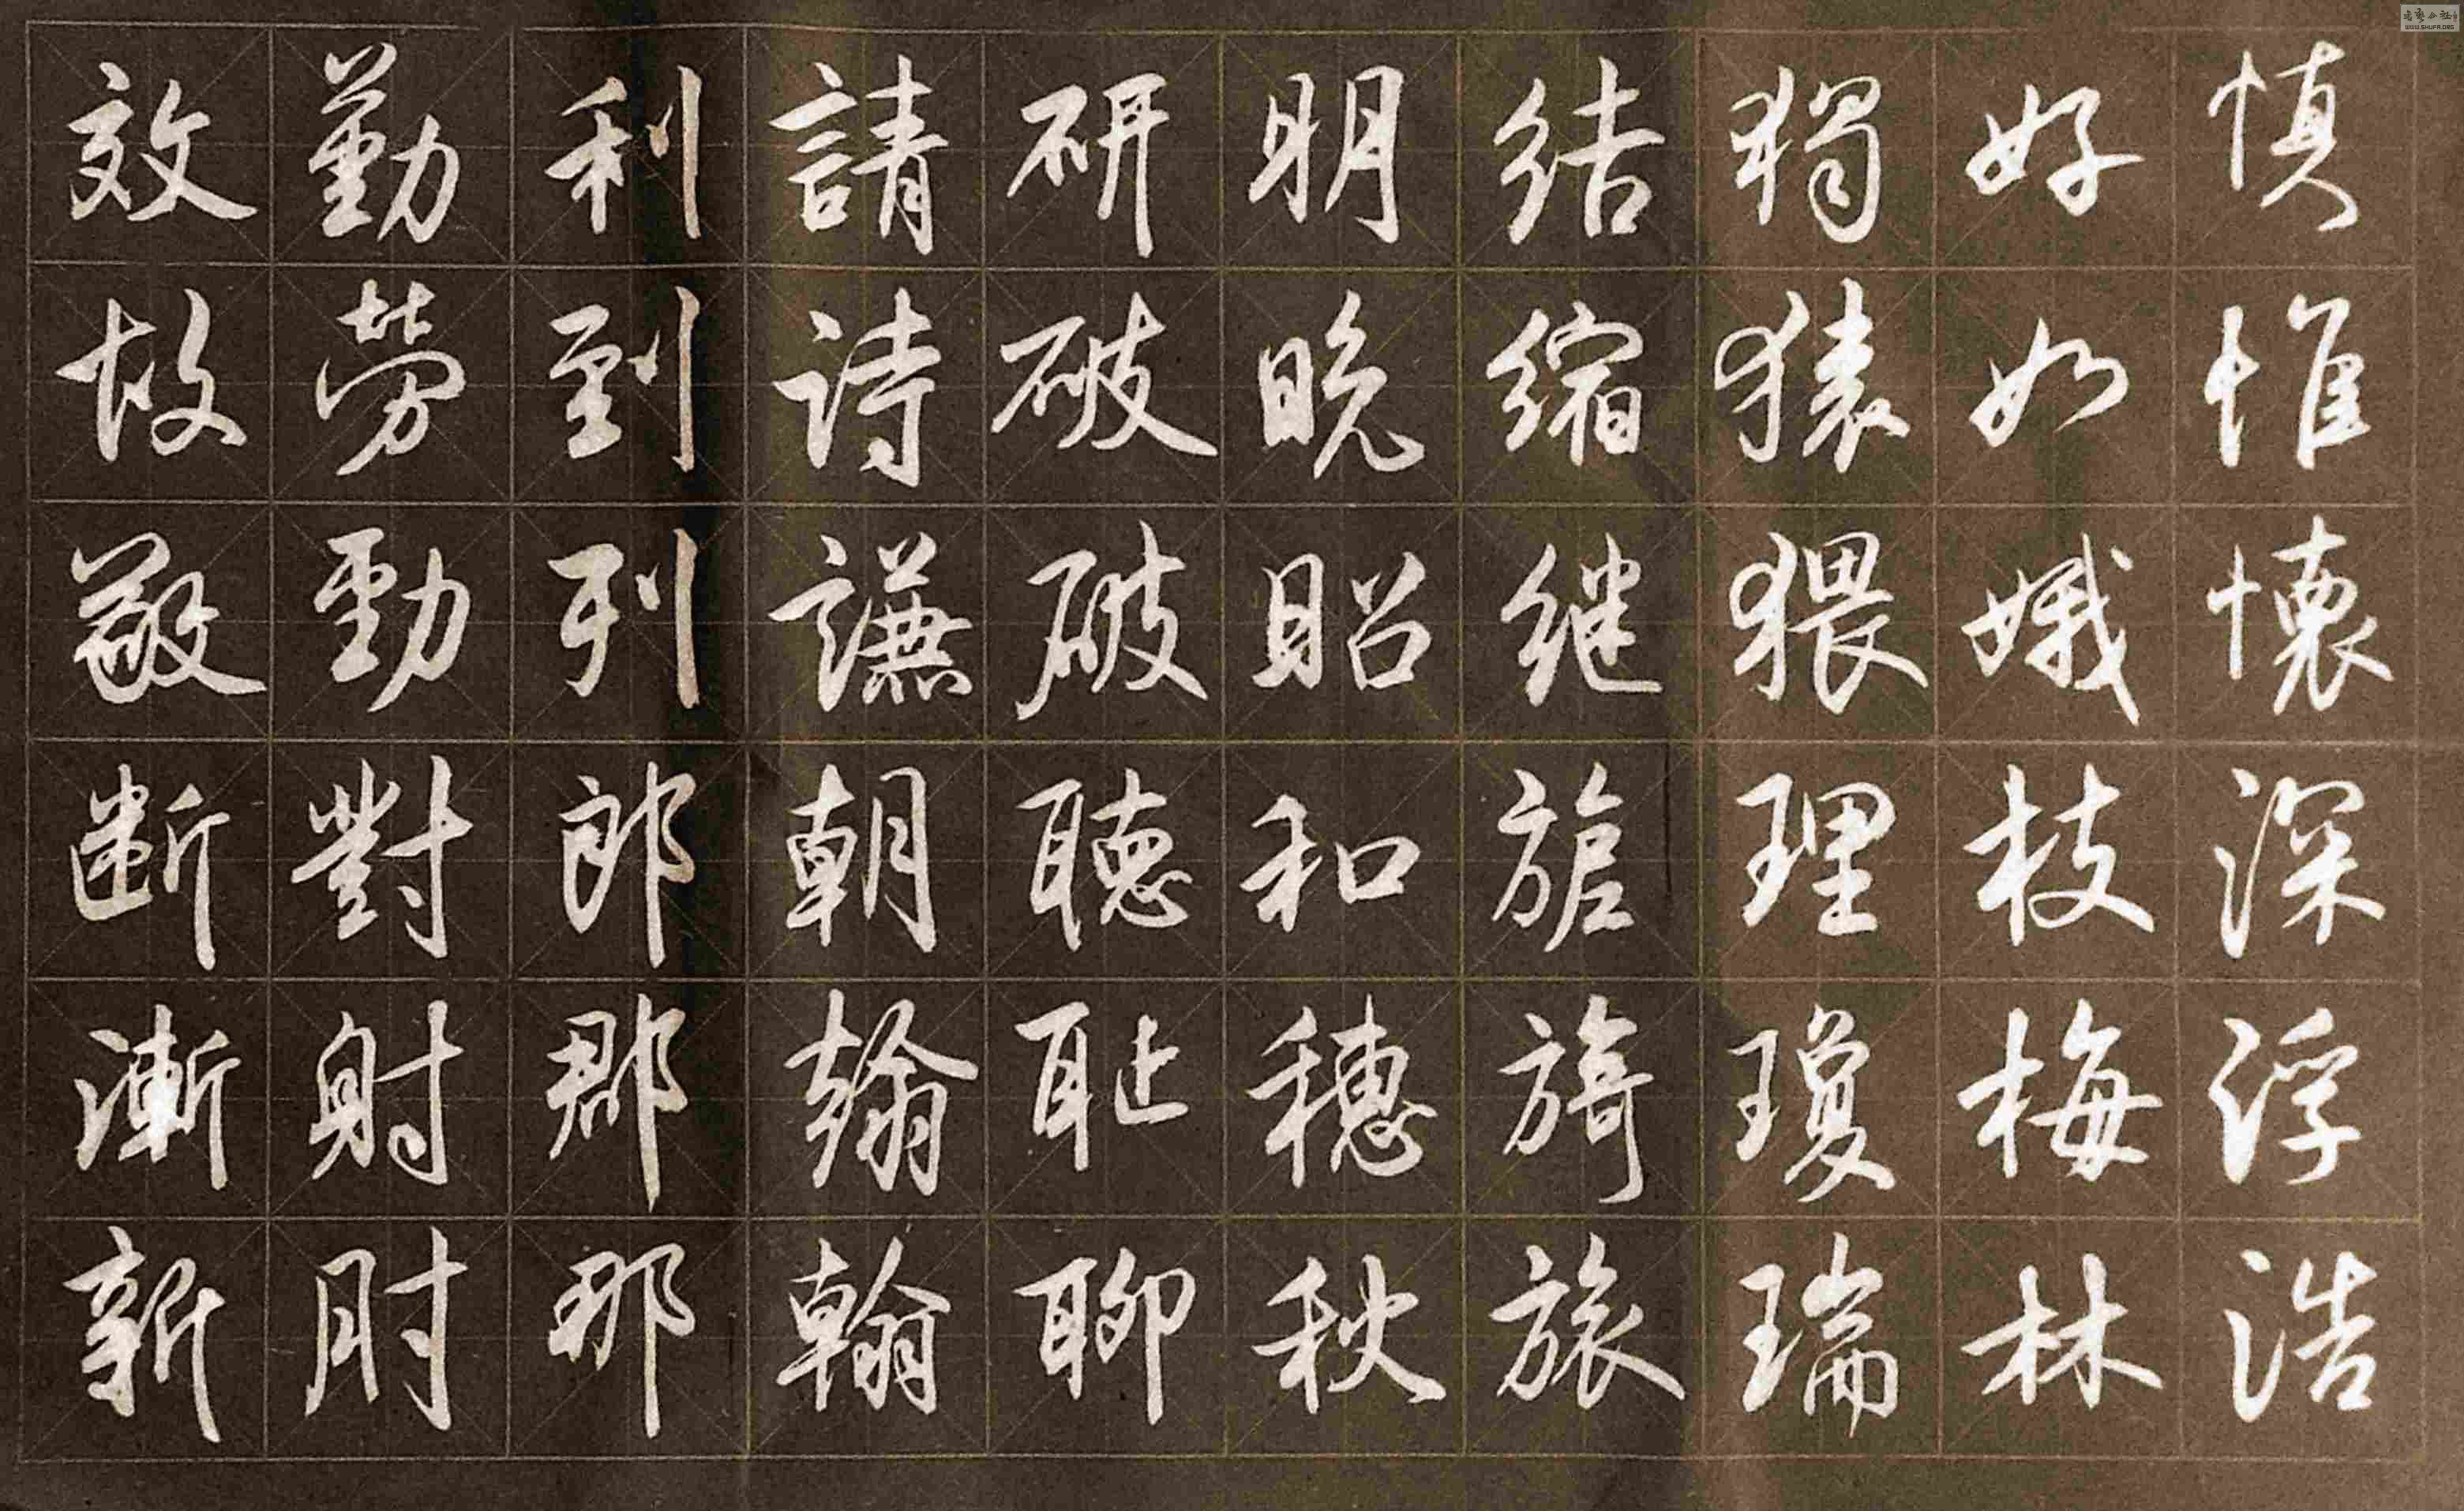 慎惟懷深浮浩
好如娥枝梅林
獨猿猥理瓊瑞
结缩继旖旅
明晚昭和穗秋
研破破聽耻聊
請詩謙朝翰翰
利到列郎郡那
勤勞動對射肘
效故敬断漸新
WWW.SHUFA.ORG